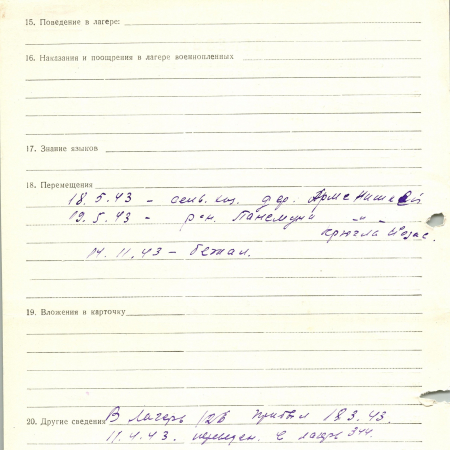 15. Поведение в лагере:
16. Наказания и поощрения в лагере военнопленных
17. Знание языков
18. Перемещения
18.5.43 – сельв. дер.
19.5.43 – рен. Панемуни – " –
14.11.43 – бежал.
19. Вложения в карточку
20. Другие сведения В лагерь 12б прибыл 18.3.43.
11.4.43. перемещен. в лагерь 344.